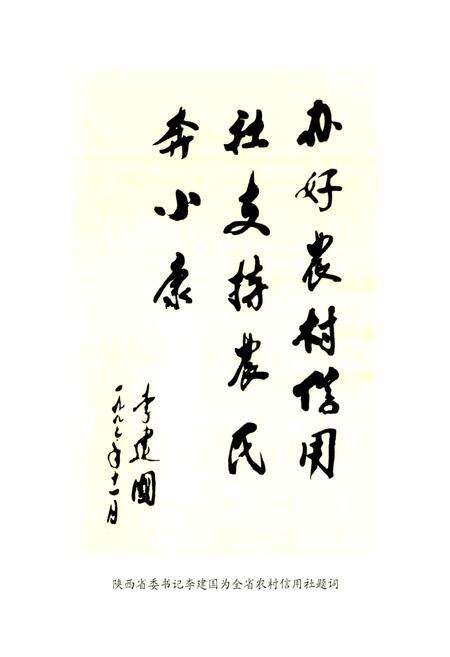 办好農村信用
社支持農民
奔小康
李建國
一九九七年十一月
陕西省委书记李建国为全省农村信用社题词